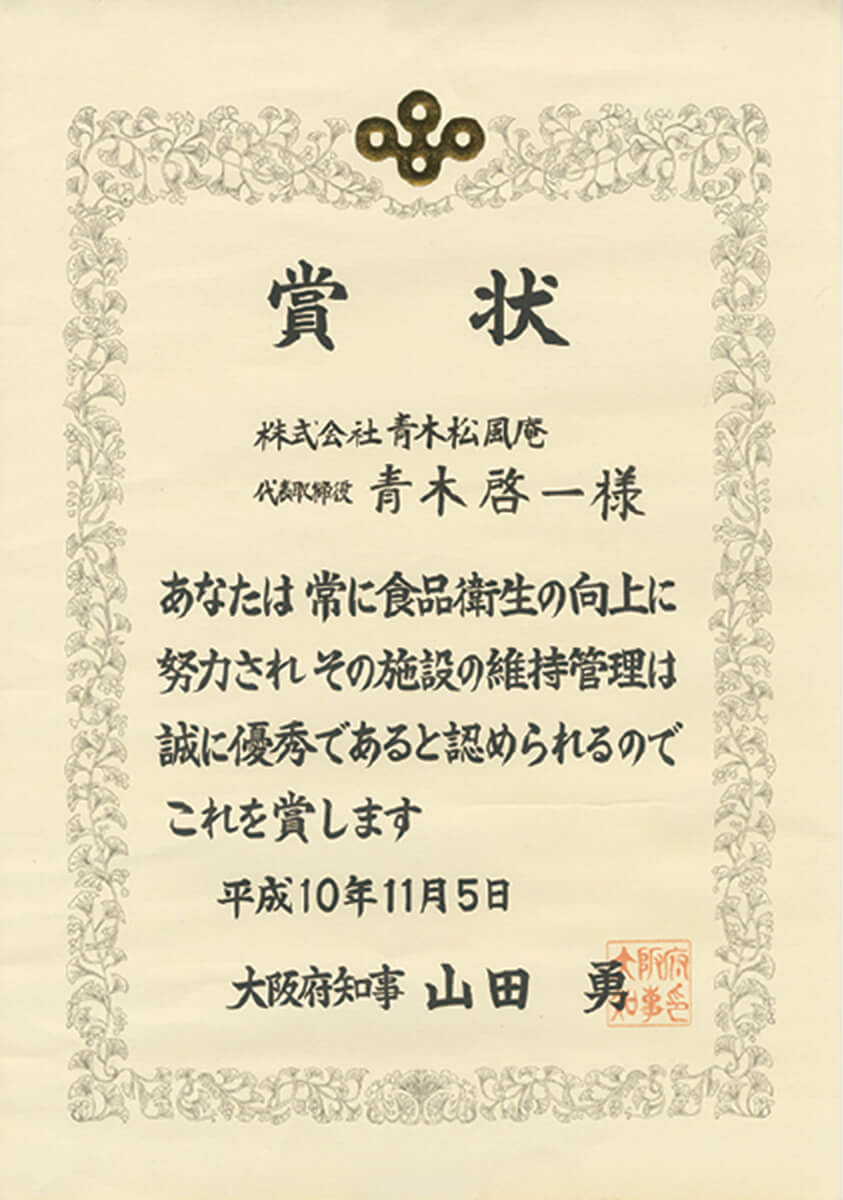 賞状
株式会社青木松風庵
代表取締役 青木啓一様
あなたは 常に食品衛生の向上に
努力され その施設の維持管理は
誠に優秀であると認められるので
これを賞します
平成10年11月5日
大阪府知事 山田 勇
大阪府
知事印